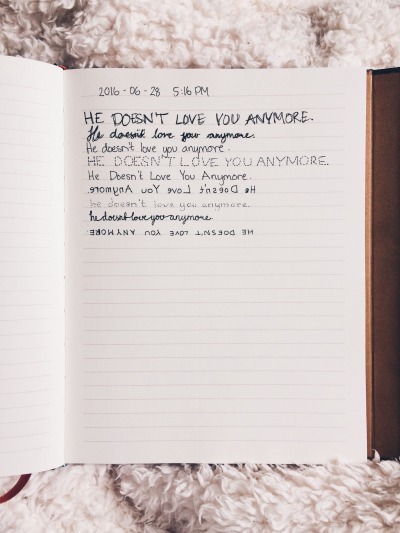 2016-06-28 5:16 PM
HE DOESN'T LOVE YOU ANYMORE.
He doesn't love you anymore.
He doesn't love you anymore.
HE DOESN'T LOVE YOU ANYMORE.
He Doesn't Love You Anymore.
He Doesn't Love You Anymore.
he doesn't love you anymore.
he doesn't love you anymore.
HE DOESN'T LOVE YOU ANYMORE.